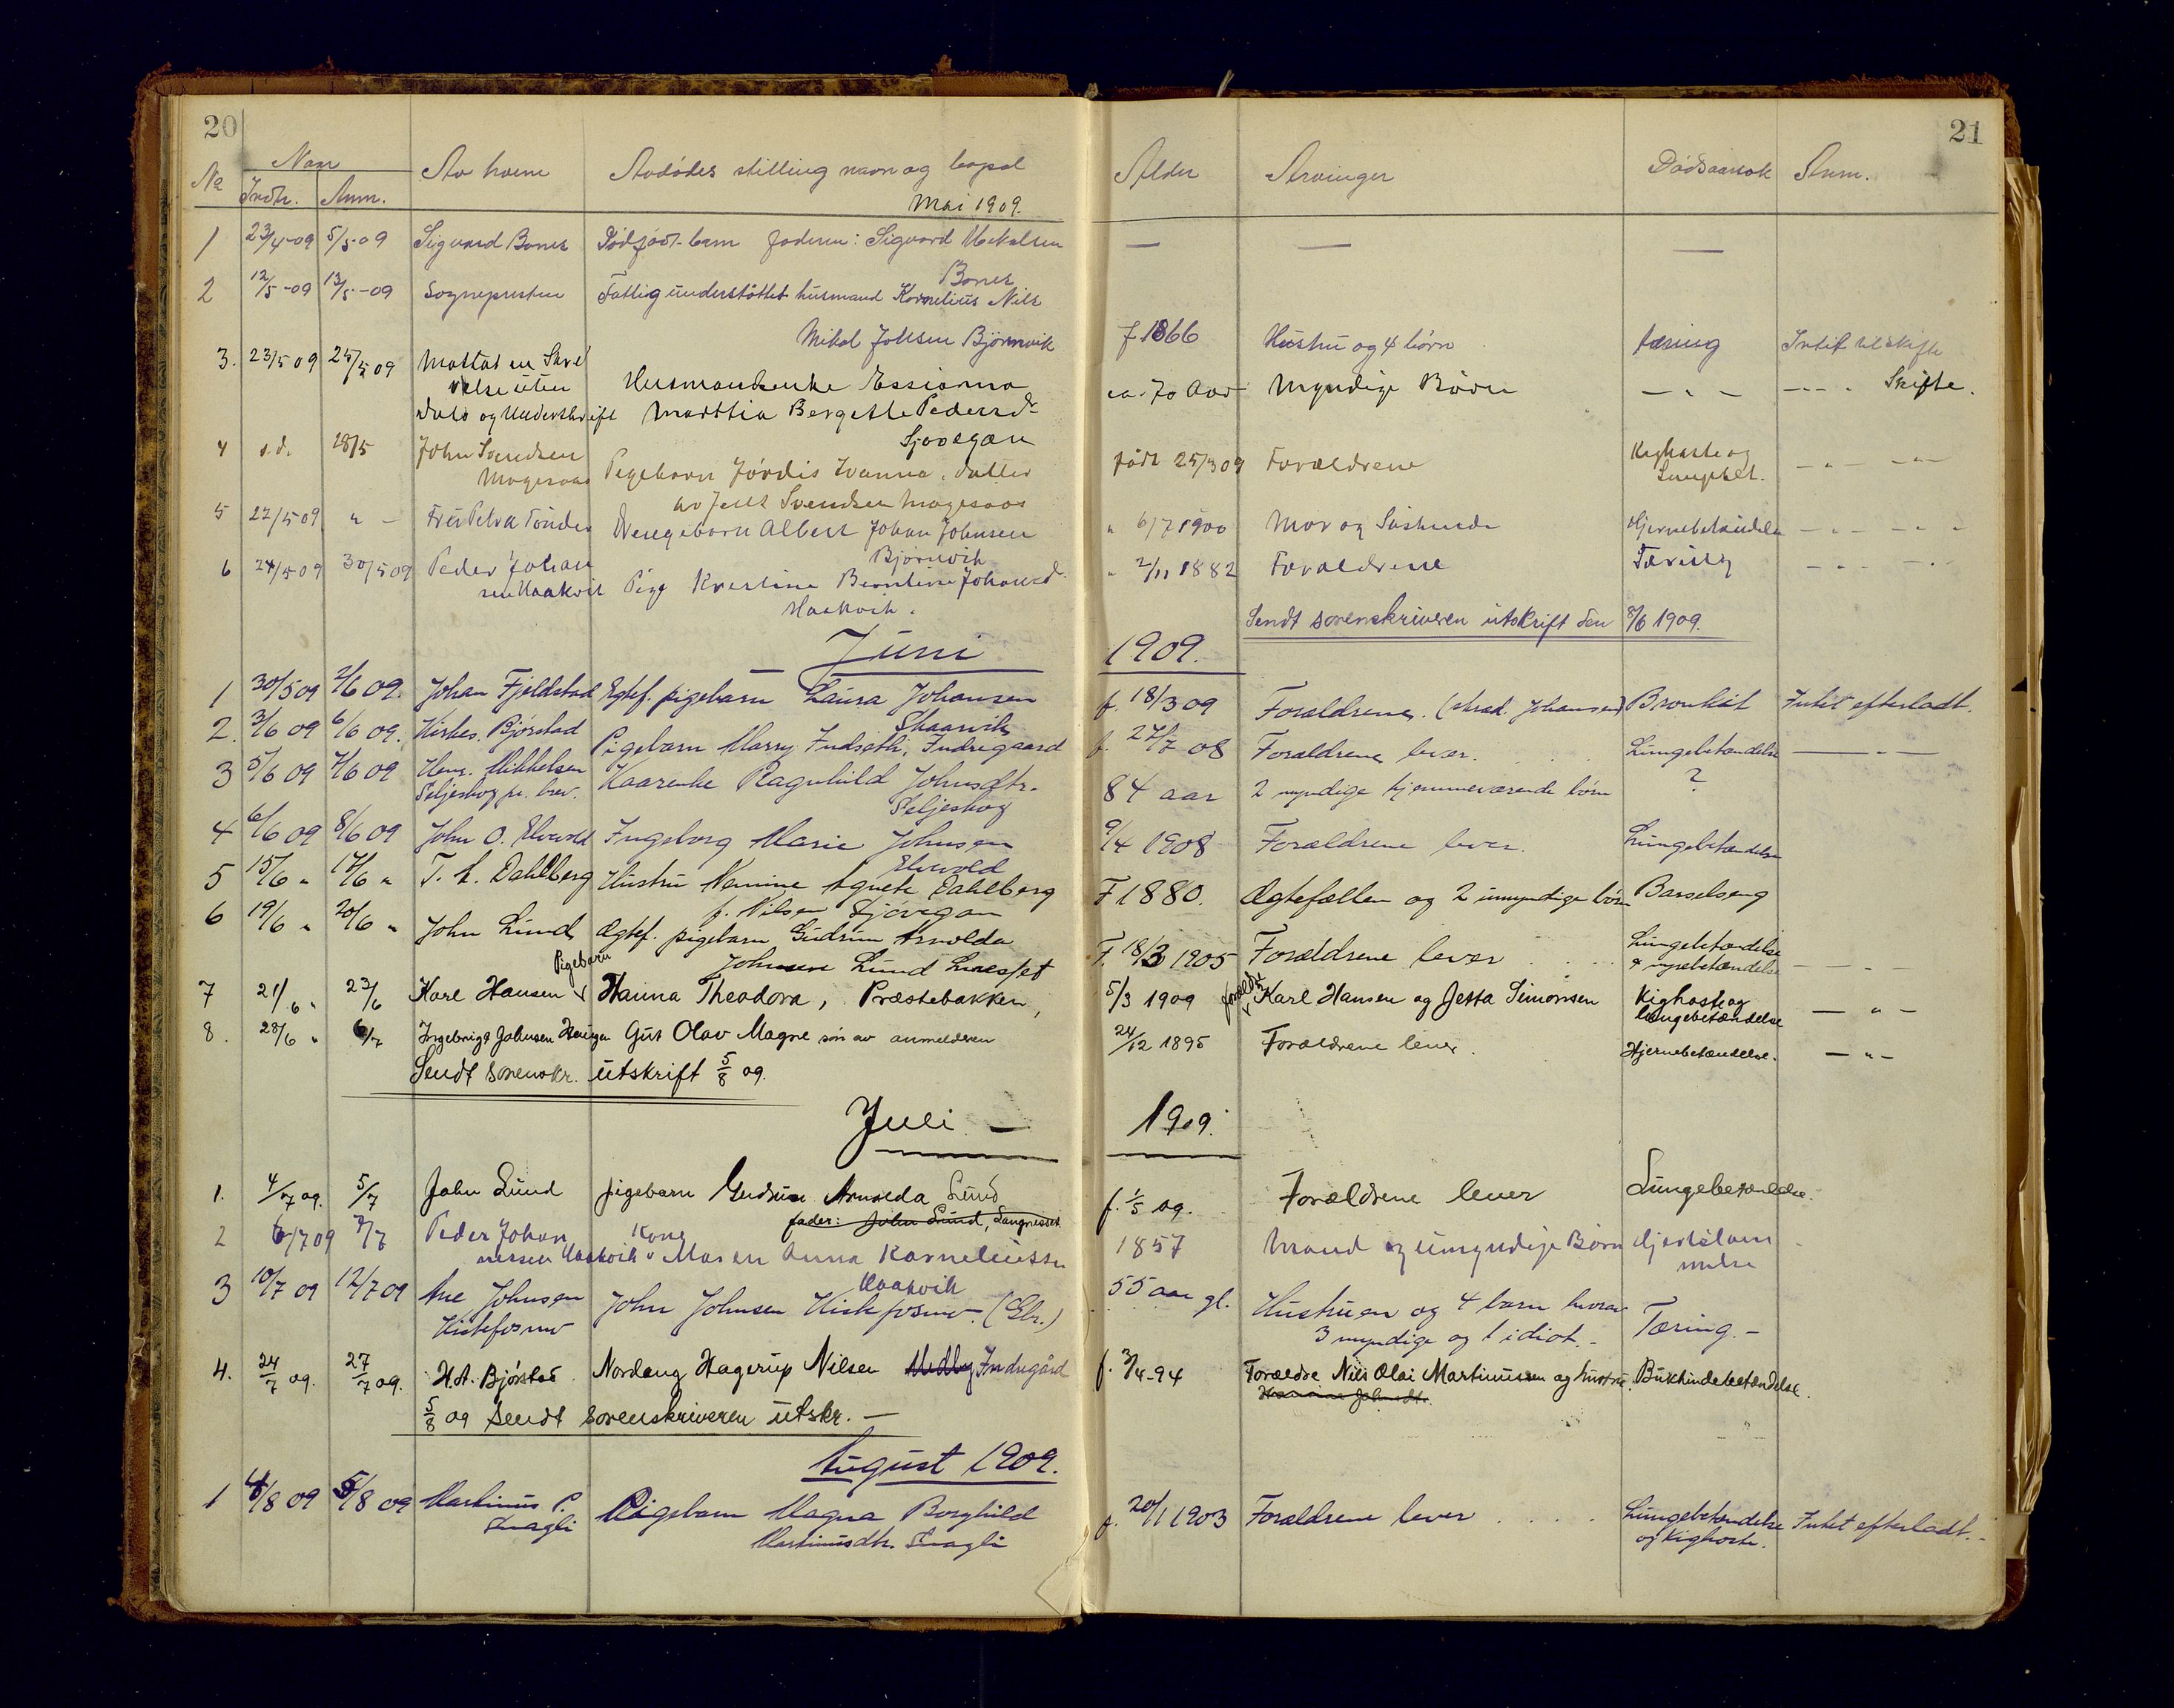 20
21
No Naar Av hvem Avdödes stilling navn og bopæl Alder Arvinger Dödsaarsak Anm.
Indtr. Anm.
Mai 1909.
1 23/4-09 5/5-09 Sigvard Bones Dödfödt barn Faderen: Sigvard Mekalsen — — —
Bones
2 12/5-09 13/5-09 Sognepresten Fattig understöttet husmand Kornelius Nils
Mikal Johsen Björnvik f 1866 Hustru og 4 börn tæring Intet til skifte
3. 23/5 09 25/5 09 Mottat en Skri
velse uten Husmandsenke Essianna ca. 70 Aar Myndige Börn — " — — " Skifte.
Dato og Underskrift Marthia Bergette Pedersdr
Sjøvegan
4 s.d. 28/5 John Svendsen
Mogesaas Pigebarn Jördis Ivanna, datter födt 25/3 09 Forældrene Kighoste og
av Jens Svendsen Mogesaas
5 27/5 09 " — Fru Petra Tönder Drengebarn Albert Johan Johnsen " 6/7 1900 Mor og Söskende Hjernebetændelse — " — — " —
Björnvik
6 24/5 09 30/5 09 Peder Johan
sen Haakvik Pige Kristine Berntine Johansdr " 2/11 1882 Forældrene Tæring — " — — " —
Haakvik.
Sendt sorenskriveren utskrift den 8/6 1909.
Juni 1909.
1 30/5 09 2/6 09. Johan Fjeldstad Egtef. pigebarn Laura Johansen f. 18/3 09 Forældrene. (strød. Johansen) Bronkit Intet efterladt.
Skaarvik
2. 3/6 09 6/6 09. Kirkes. Björstad Pigebarn Marry Indseth, Indregaard f. 27/7 08 Forældrene lever. Lungebetændelse — " —
3 5/6 09 7/6 09 Hans. Mikkelsen Kaarenke Ragnhild Johnsdtr. 84 aar 2 myndige hjemmeværende börn ?
Seljeskog pr. brev. Seljeskog
4 6/6 09 8/6 09 John O. Elvevold Ingeborg Marie Johnsen 9/4 1908 Forældrene lever. Lungebetændelse
Elvevold
5 15/6 " 17/6 " T. A. Dahlberg Hustru Nanine Agnete Dahlberg F 1880. Ægtefællen og 2 umyndige börn Barselseng
f. Nilsen Sjövegan
6 19/6 " 20/6 " John Lund Ægtef. pigebarn Gudrun Arnolda F. 18/3 1905 Forældrene lever Lungebetændelse
& nyrebetændelse — " —
Johnsen Lund Lnesset
Pigebarn
7 21/6 " 23/6 Karl Hansen Hanna Theodora, Præstebakken, 5/3 1909 forældre Karl Hansen og Jetta Simonsen Kighoste og
lungebetændelse — " —
8. 28/6 " 6/7 Ingebrigt Johnsen Haugen Gut Olav Magne sön av anmelderen 24/12 1895 Forældrene lever. Hjernebetændelse. — " —
Sendt sorenskr. utskrift 5/8 09.
Juli — 1909.
1. 4/7 09. 5/7 John Lund pigebarn Gudrun Arnolda Lund f. 1/5 09. Forældrene lever Lungebetændelse.
fader: John Lund, Langnesset
2 6/7 09 7/7 Peder Johan Kone
nessen Haakvik Maren Anna Karneliussen 1857 Mand og umyndige Börn Hjertelam
melse
Haakvik
3 10/7 09 12/7 09 Ane Johnsen John Johnsen Kistefosmo. (Slr.) 55 aar gl. Hustruen og 4 barn hvorav Tæring. —
Kistefosmo 3 myndige og 1 idiot. —
4. 24/7 09. 27/7 09. H.A. Björstad Nordeng Hagerup Nilsen Medby Indregård f. 3/4-94 Forældre Nils Olai Martinussen og hustru Bukhindebetændelse.
Hanna Johnsdtr.
5/8 09 Sendt sorenskriveren utskr. —
August 1909.
1 4/8 09 5/8 09 Martinus P. Pigebarn Magna Borghild f. 20/1 1903 Forældrene lever Lungebetændelse Intet efterladt. —
Martinusdtr. og Kighoste.